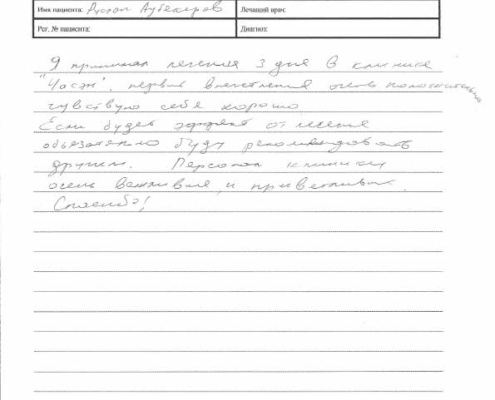 Имя пациента: Руслан Аубекеров Лечащий врач:
Рег. № пациента: Диагноз:
Я принимал лечения 3 дня в клинике
"Часэн". первые впечатления очень положительные
чувствую себя хорошо.
Если будет эффект от лечение
обязательно буду рекомендовать
другим. Персонал клиники
очень вежливые и приветливые.
Спасибо!